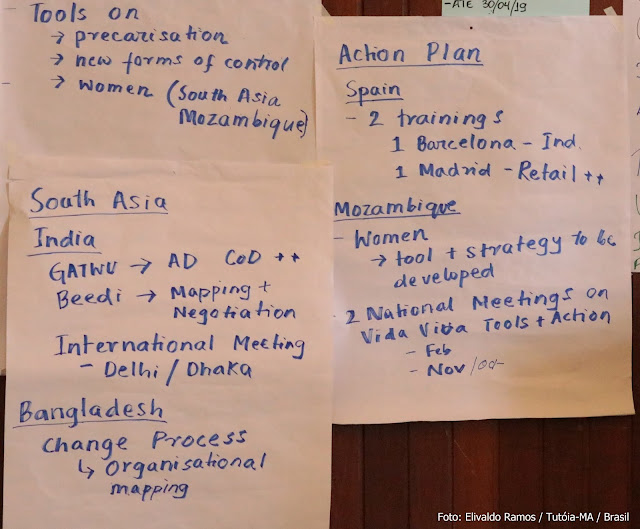 Tools on
→ precarisation
→ new forms of control
→ women (South Asia
Mozambique)
South Asia
India
GATWU → AD COD ++
Beedi → Mapping +
Negotiation
International Meeting
- Delhi / Dhaka
Bangladesh
Change Process
↳ organisational
mapping
-ATE 30/04/19
Action Plan
Spain
- 2 trainings
1 Barcelona - Ind.
1 Madrid - Retail ++
Mozambique
- Women
→ tool + strategy to be
developed
- 2 National Meetings on
Vida Viva Tools + Action
- Feb
- Nov /
Foto: Elivaldo Ramos / Tutóia-MA / Brasil